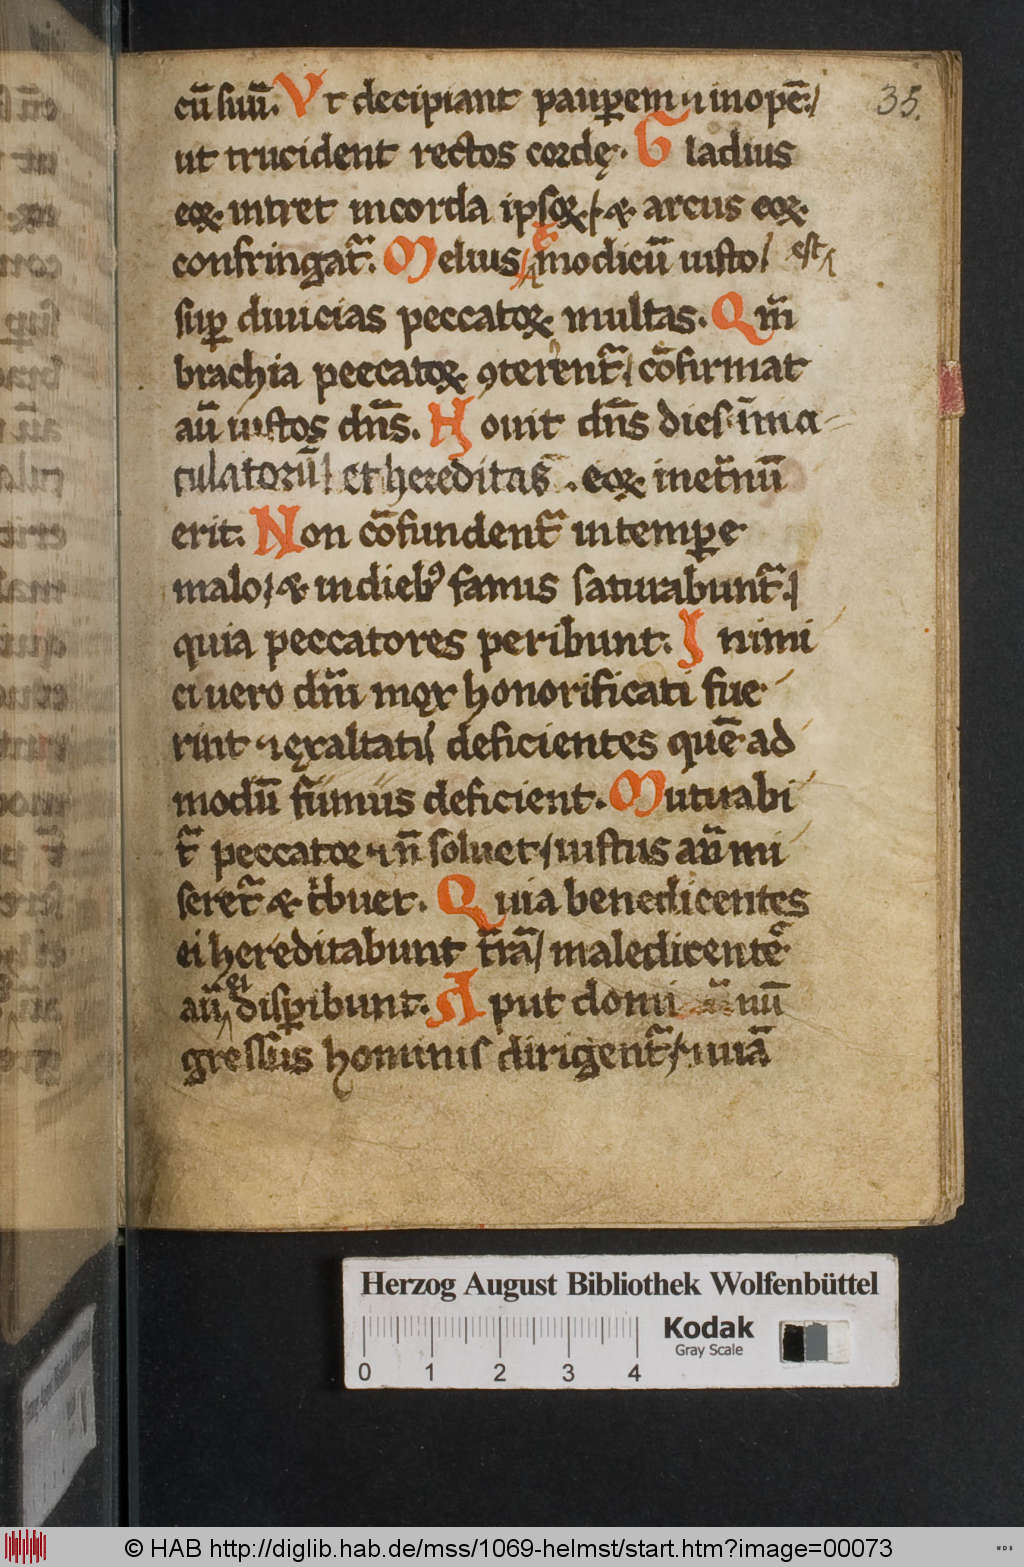 cū suū. Vt decipiant pauꝑem ⁊ inopē:/ 35.
ut trucident rectos cordę. Gladius
eoꝝ intret in corda ipsoꝝ/ & arcus eoꝝ
confringat᷑. Melius est modicū iusto/
suꝑ diuicias peccatoꝝ multas. Qm̄
brachia peccatoꝝ ꝯterent᷑/ cōfirmat
aū iustos dn̄s. Nouit dn̄s dies īma-
culatorū/ et hereditas eoꝝ in et̄nū
erit. Non cōfundent᷑ in temꝑe
malo/ & in dieb᷒ famis saturabunt᷑/
quia peccatores peribunt: Inimi
ci uero dn̄i mox honorificati fue
rint ⁊ exaltati/ deficientes quē ad
modū fūmus deficient. Mutuabi
t᷑ peccator ⁊ n̄ soluet/ iustus aū mi
seret᷑ & t͛buet. Quia benedicentes
ei hereditabunt t̄rā/ maledicentes
aū ei disꝑibunt. Aput domi nū
gressus hominis dirigent᷑/ ⁊ uiā
Herzog August Bibliothek Wolfenbüttel
Kodak
Gray Scale
0 1 2 3 4
© HAB http://diglib.hab.de/mss/1069-helmst/start.htm?image=00073